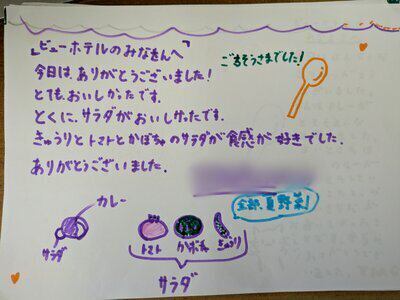 ビューホテルのみなさんへ
ごちそうさまでした!
今日は、ありがとうございました!
とても、おいしかったです。
とくに、サラダがおいしかったです。
きゅうりとトマトとかぼちゃのサラダが食感が好きでした。
ありがとうございました。
全部、夏野菜!
カレー
サラダ
トマト かぼちゃ きゅうり
サラダ